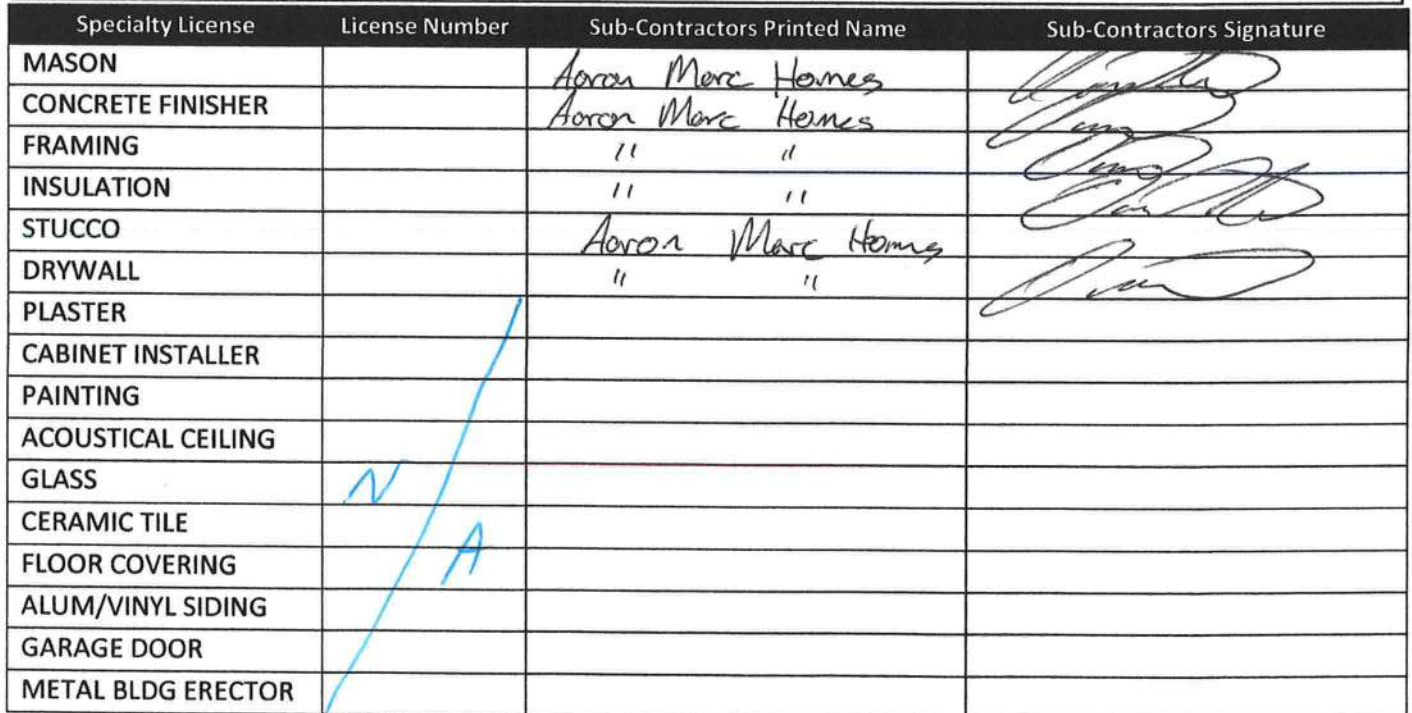 Specialty License License Number Sub-Contractors Printed Name Sub-Contractors Signature
MASON Aaron Marc Homes
CONCRETE FINISHER Aaron Marc Homes
FRAMING " "
INSULATION " "
STUCCO Aaron Marc Homes
DRYWALL " "
PLASTER
CABINET INSTALLER
PAINTING
ACOUSTICAL CEILING
GLASS N
CERAMIC TILE
FLOOR COVERING A
ALUM/VINYL SIDING
GARAGE DOOR
METAL BLDG ERECTOR